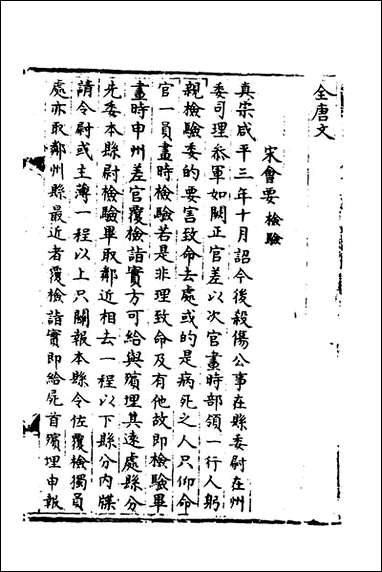 全唐文
宋會要 檢驗
真宗咸平三年十月詔今後殺傷公事在縣委尉在州
委司理參軍如闕正官差以次官畫時部領一行人躬
親檢驗委的要害致命去處或的是病死之人只仰命
官一員畫時檢驗若是非理致命及有他故即檢驗畢
畫時申州差官覆檢詣實方可給與殯埋其遠處縣分
先委本縣尉檢驗畢取鄰近相去一程以下縣分內牒
請令尉或主薄一程以上只關報本縣令佐覆檢獨員
處亦取鄰州縣最近者覆檢詣實即給屍首殯埋申報